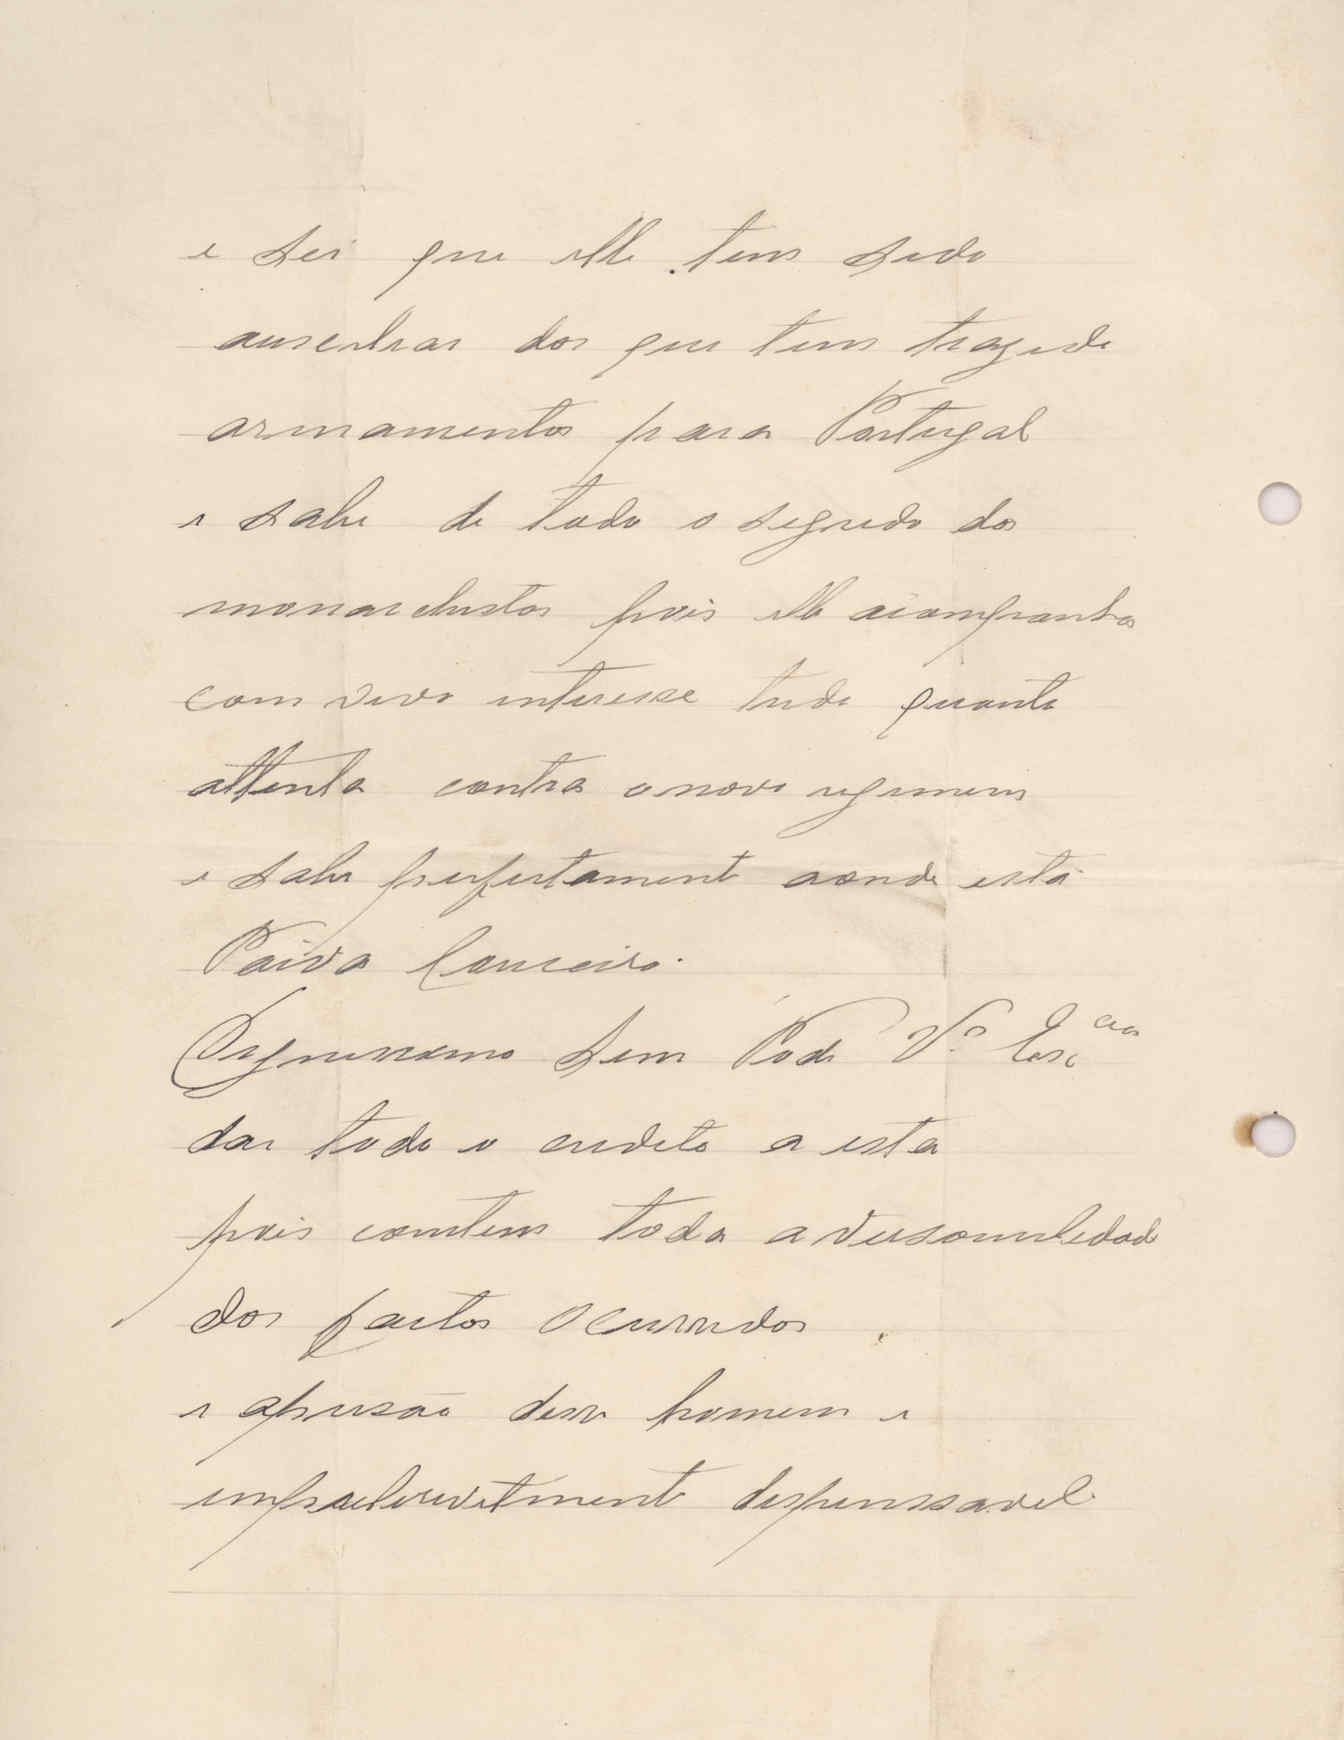 e sei que elle tem sido
ausceliar dos que tem trazido
armamentos para Portugal
e sabe de todo o segredo dos
monarchistas pois elle acompanha
com vivo interesse tudo quanto
attenta contra o novo regimem
e sabe perfeitamente aonde está
Paiva Couceiro.
Dignissimo Sem Pode V.ª Exc cia
dar todo o credito a esta
pois contem toda a verosemeledade
dos factos ocurridos
e aprisão desse homem e
dispensavel